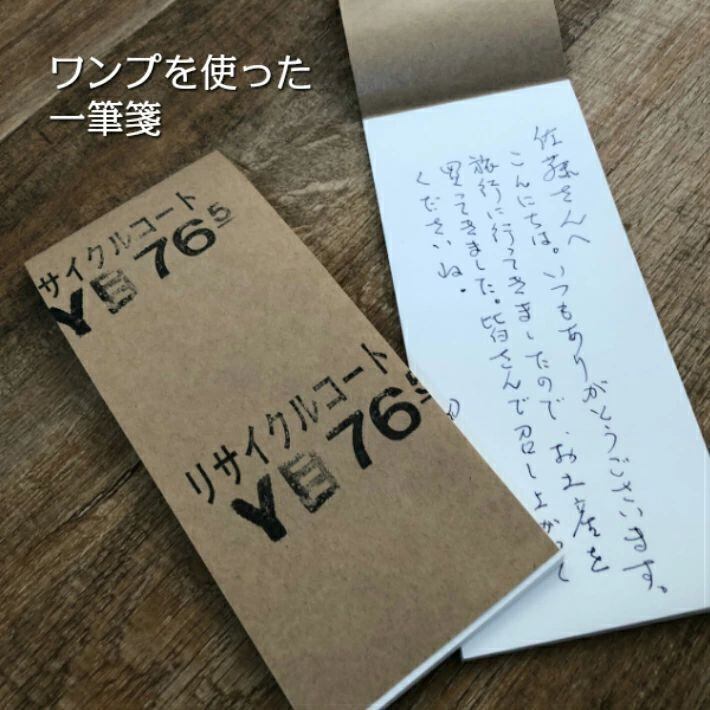 ワンプを使った
一筆箋
サイクルコート
Y目 76.5
リサイクルコート
Y目 76.5
佐藤さんへ
こんにちは。いつもありがとうございます。
旅行に行ってきましたので、お土産を
買ってきました。皆さんで召し上がって
くださいね。